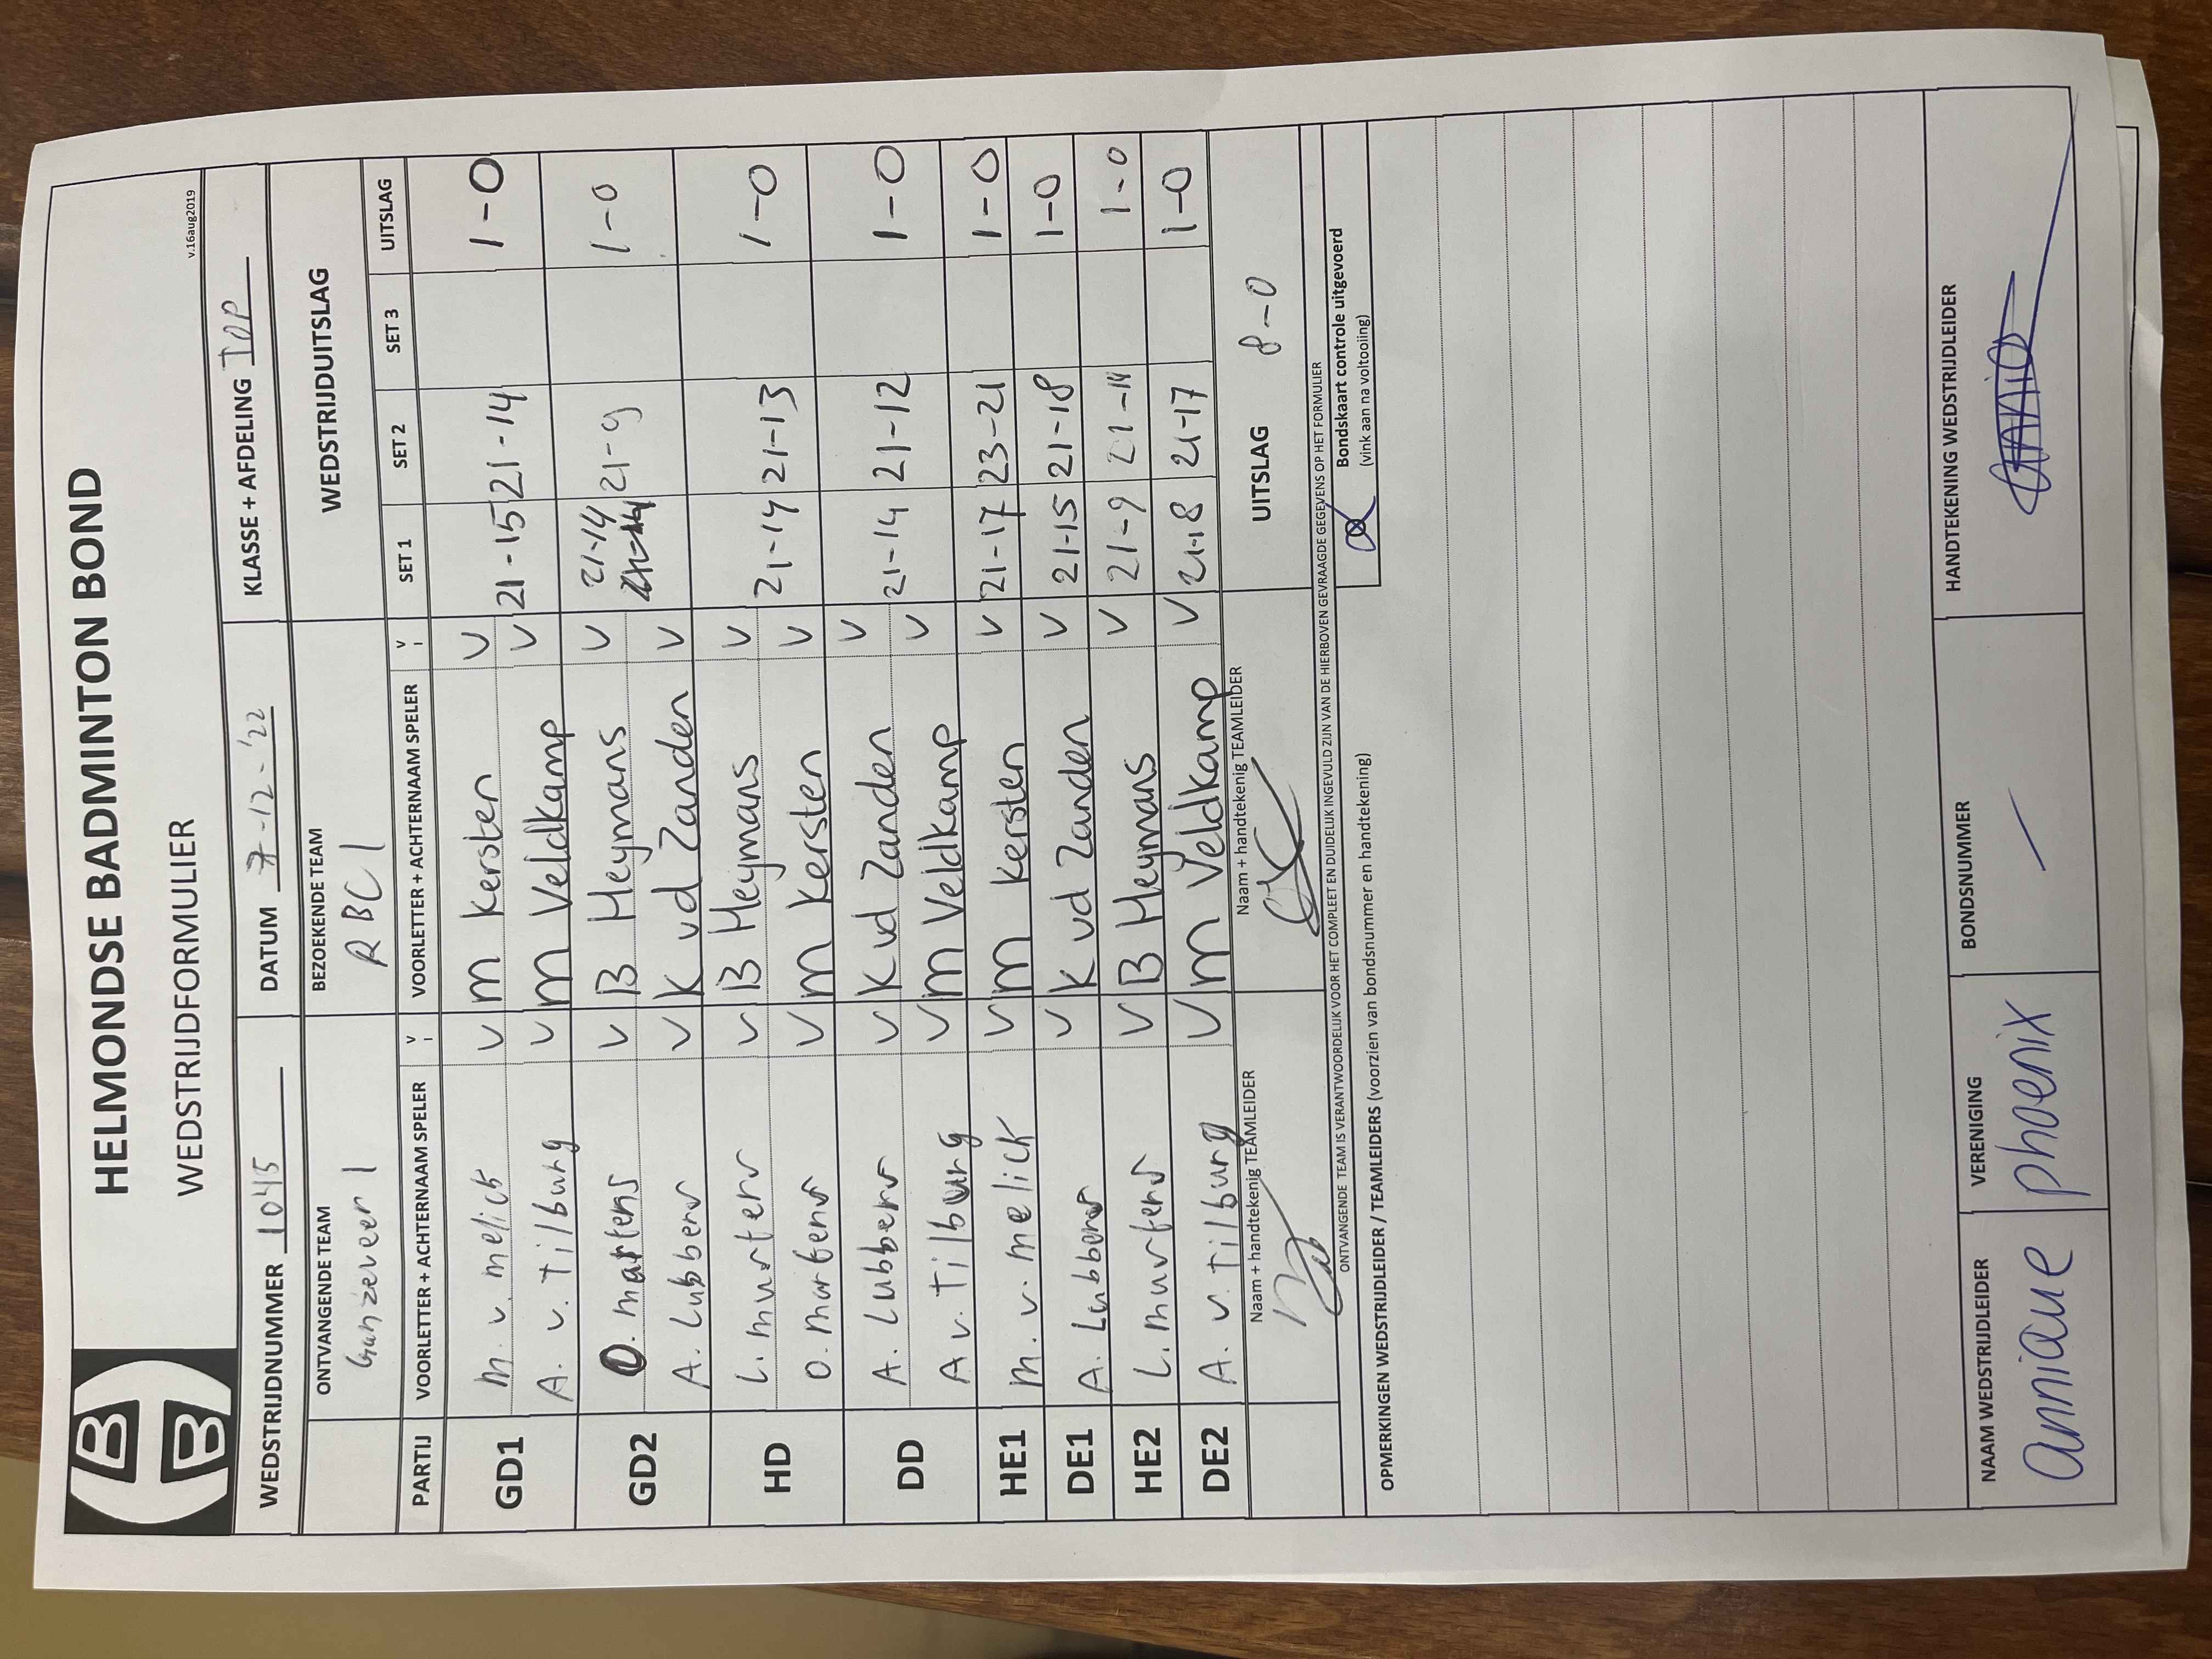 HELMONDSE BADMINTON BOND
WEDSTRIJDFORMULIER
v.16aug2019
WEDSTRIJDNUMMER 1045 DATUM 7-12-'22 KLASSE + AFDELING TOP
ONTVANGENDE TEAM BEZOEKENDE TEAM WEDSTRIJDUITSLAG
Ganzeveer 1 RBC 1
PARTIJ VOORLETTER + ACHTERNAAM SPELER V VOORLETTER + ACHTERNAAM SPELER V SET 1 SET 2 SET 3 UITSLAG
GD1 M. v. melick V m Kersten V 21-15 21-14 1-0
A. v. Tilburg V m Veldkamp V
GD2 O. martens V B Heymans V 21-14 21-9 1-0
A. Lubbers V K vd Zanden V
HD L. martens V B Heymans V 21-14 21-13 1-0
O. martens V m Kersten V
DD A. Lubbers V K vd Zanden V 21-14 21-12 1-0
A v. Tilburg V m Veldkamp V
HE1 M. v. melick V m Kersten V 21-17 23-21 1-0
DE1 A. Lubbers V K vd Zanden V 21-15 21-18 1-0
HE2 L. martens V B Heymans V 21-9 21-14 1-0
DE2 A. v. Tilburg V m Veldkamp V 21-18 21-17 1-0
Naam + handtekenig TEAMLEIDER Naam + handtekenig TEAMLEIDER UITSLAG 8-0
ONTVANGENDE TEAM IS VERANTWOORDELIJK VOOR HET COMPLEET EN DUIDELIJK INGEVULD ZIJN VAN DE HIERBOVEN GEVRAAGDE GEGEVENS OP HET FORMULIER
Bondskaart controle uitgevoerd
(vink aan na voltooiing)
OPMERKINGEN WEDSTRIJDLEIDER / TEAMLEIDERS (voorzien van bondsnummer en handtekening)
NAAM WEDSTRIJDLEIDER VERENIGING BONDSNUMMER HANDTEKENING WEDSTRIJDLEIDER
annique phoenix